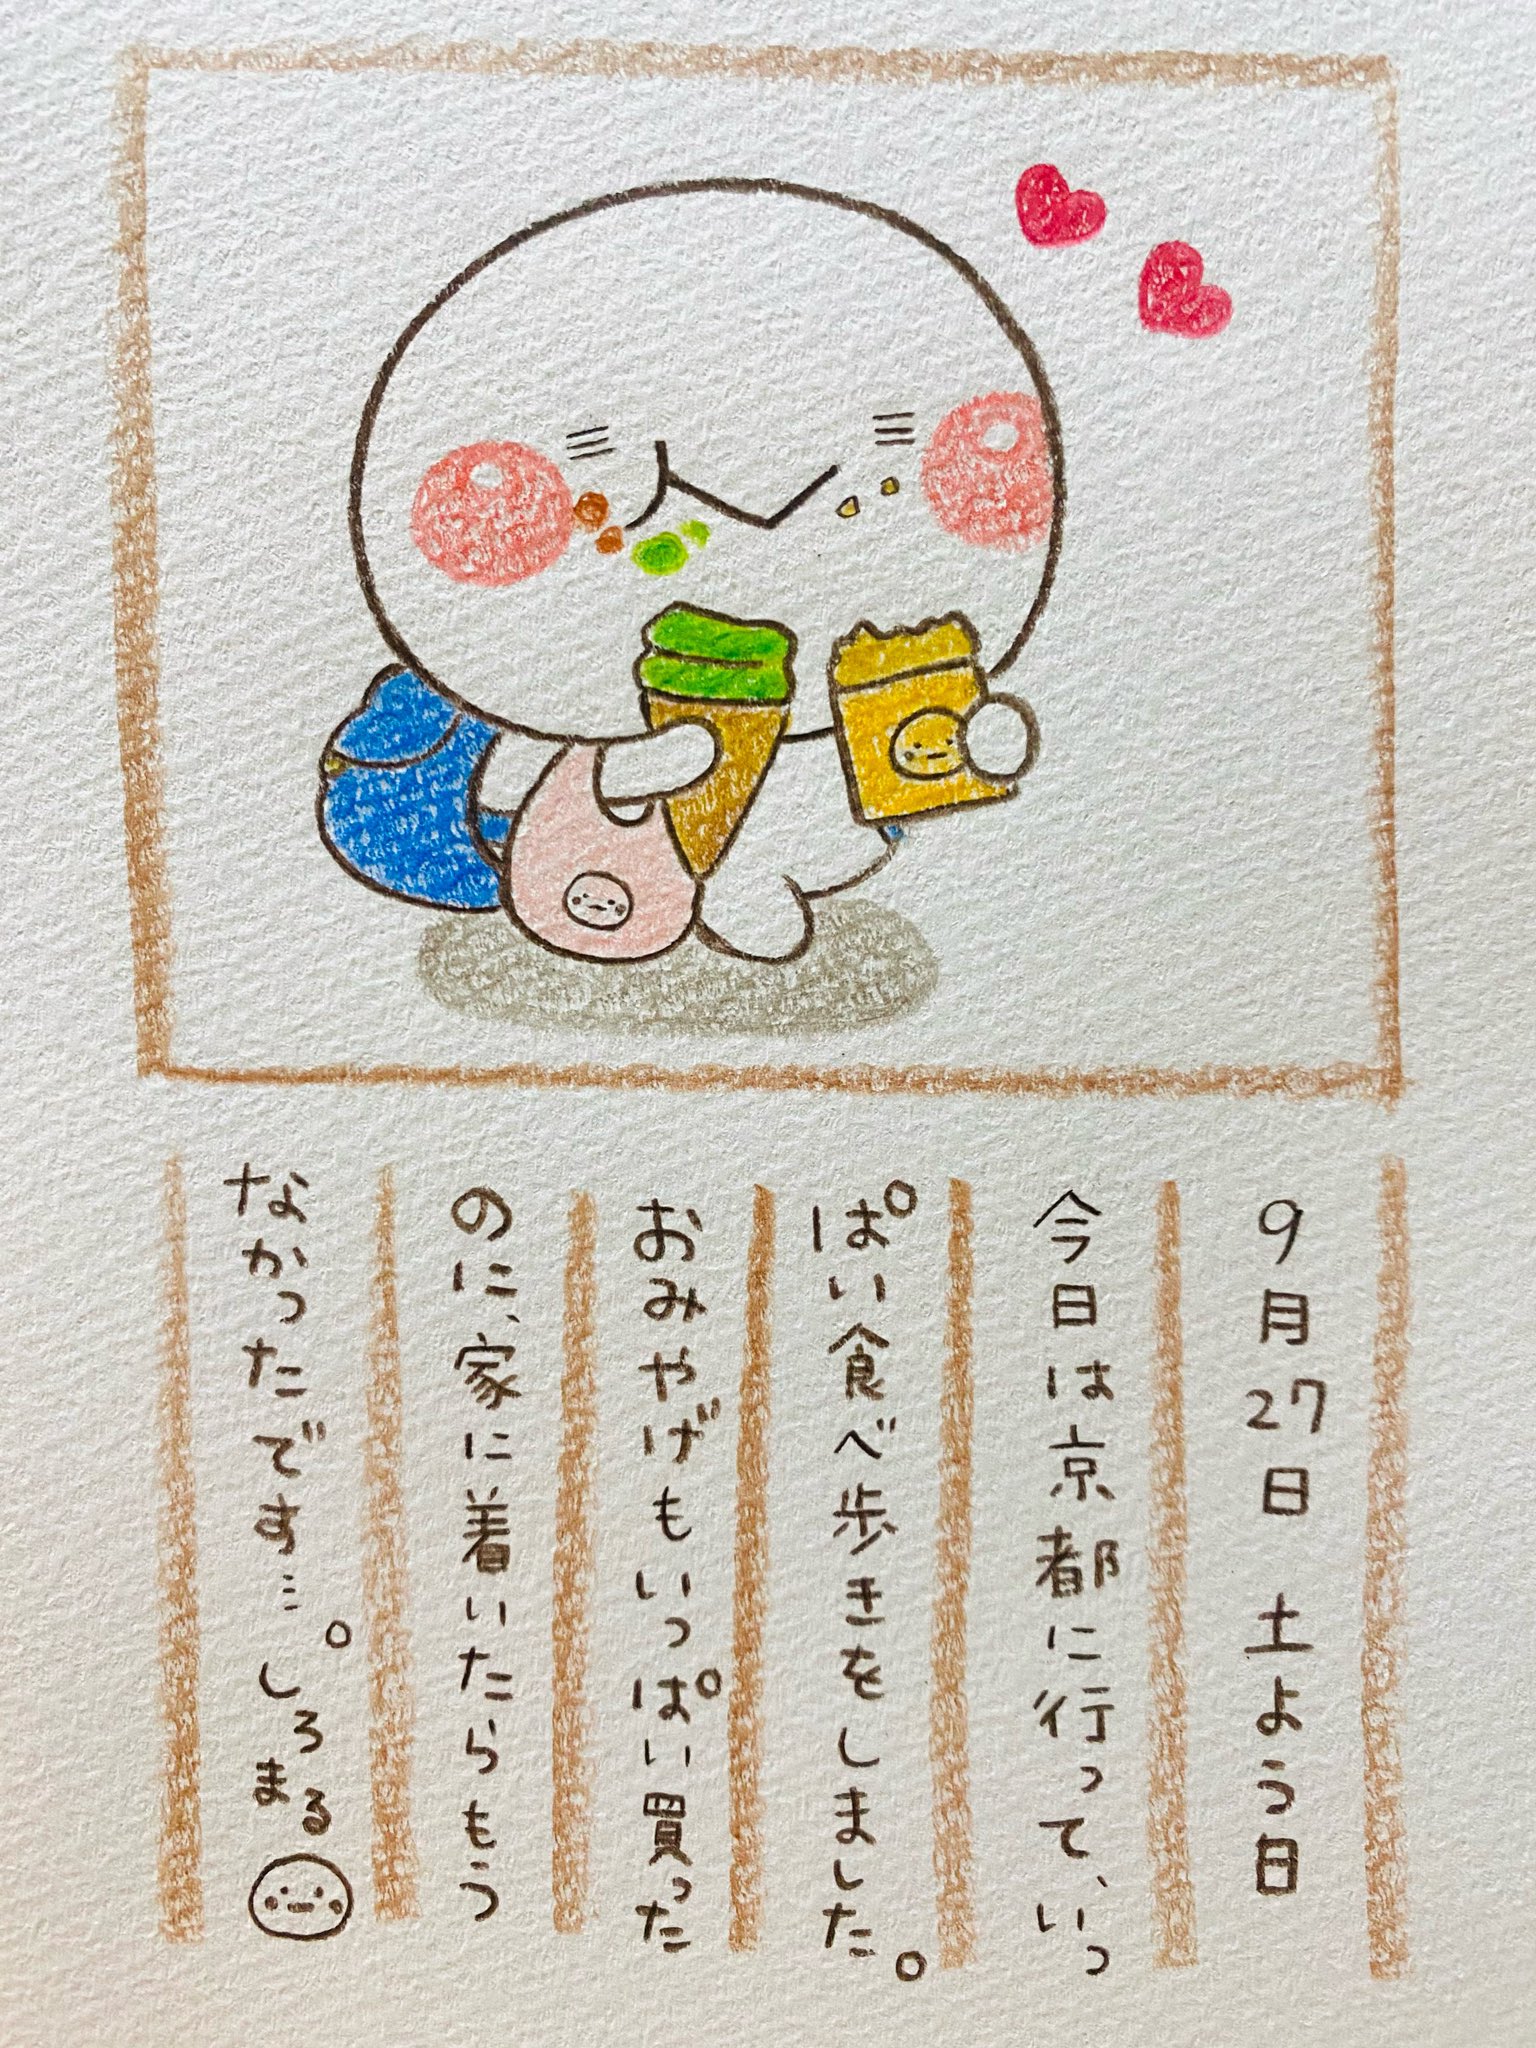 9月27日 土よう日
今日は京都に行って、いっ
ぱい食べ歩きをしました。
おみやげもいっぱい買った
のに、家に着いたらもう
なかったです…。しろまる